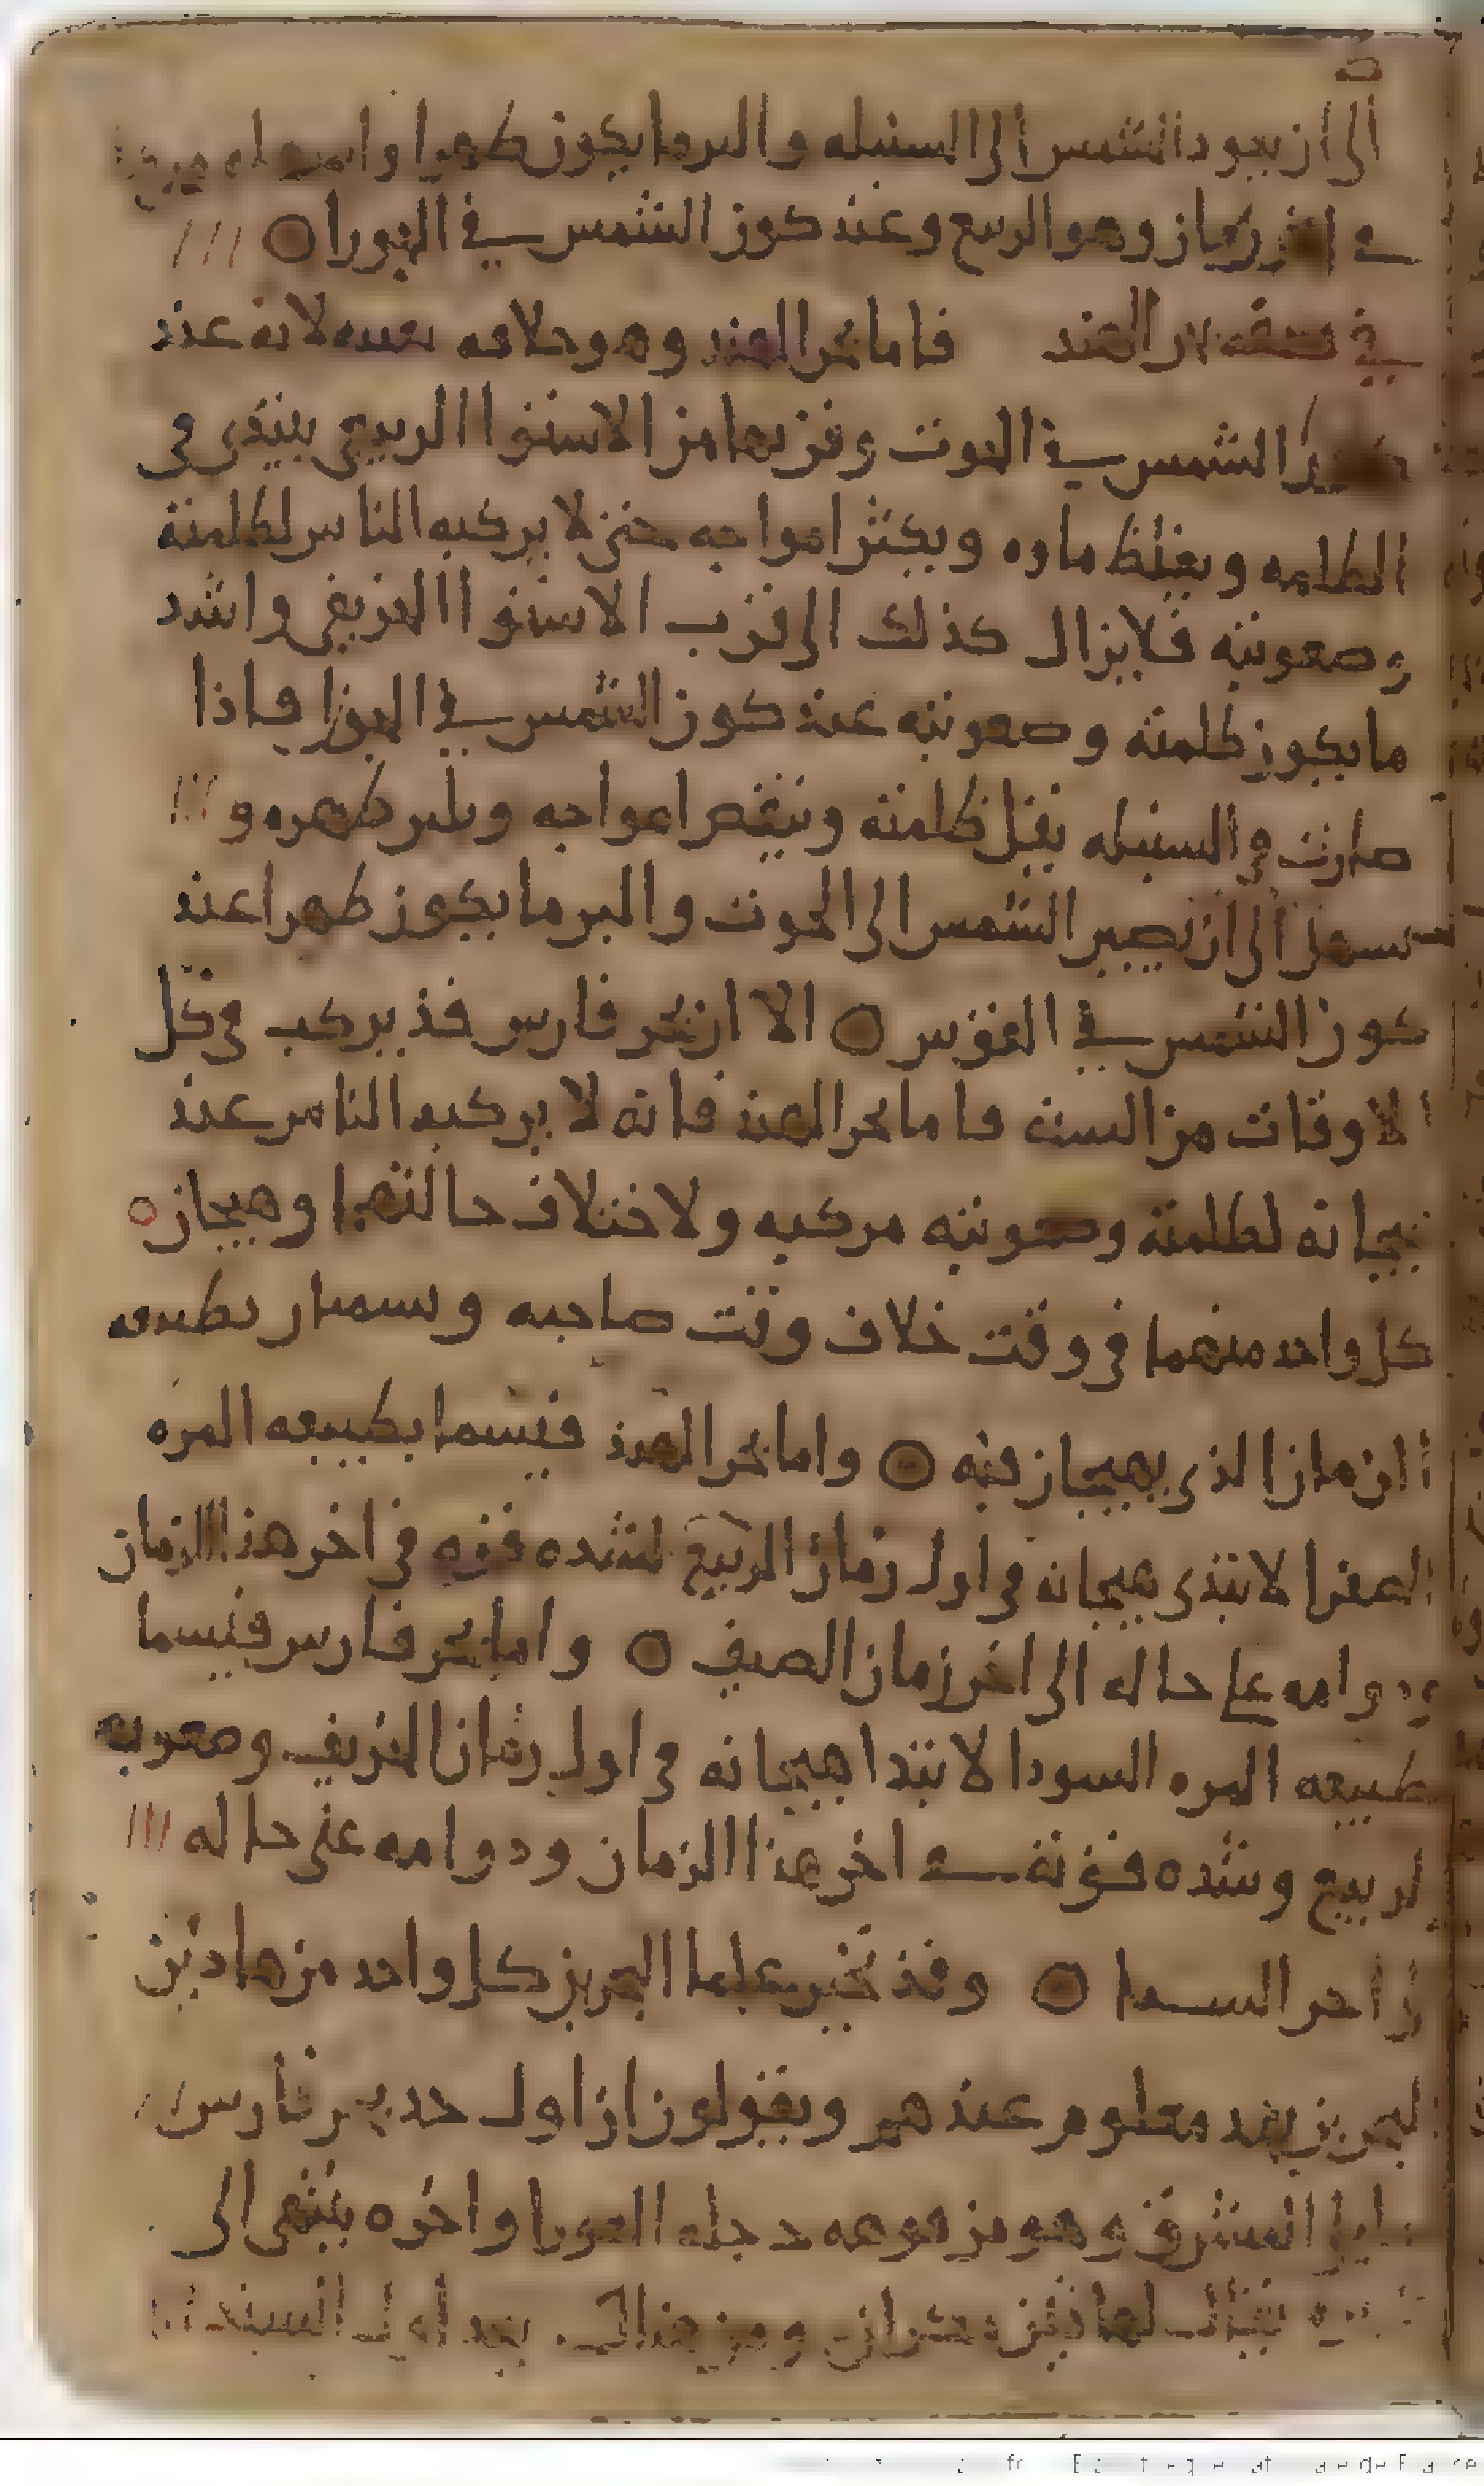 الى ان يعود الشمس الى السنبله والىرما يكون ظهرا
في اخر زمان وهو الربيع وعند كون الشمس في الجوزا ○
في صفه بحر الهند فاما بحر الهند وهو خلافه لانه عند
الشمس في الحوت وقربها من الاستوا الربيعى يبتدى فى
الظلمه ويغلظ ماوه ويكثر امواجه حتى لا يركبه الناس لظلمته
وصعوبته فلا يزال كذلك الى قرب الاستوا الخريفى واشد
ما يكون ظلمته وصعوبته عند كون الشمس في الجوزا فاذا
صارت فى السنبله يقل ظلمته وينقص امواجه ويلين ظهره و
يسهل الى ان تصير الشمس الى الحوت والين ما يكون ظهرا عند
كون الشمس في القوس ○ الا ان بحر فارس قد يركب فى كل
الاوقات من السنه فاما بحر الهند فانه لا يركبه الناس عند
هيجانه لظلمته وصعوبته مركبه ولاختلاف حالتهما وهيجان ○
كل واحد منهما فى وقت خلاف وقت صاحبه وىسمىان بطبيعه
الزمان الذى يهيجان فيه ○ واما بحر الهند فيسما بطبيعه المره
الصفرا لابتدى هيجانه فى اول زمان الربيع لشده قوته فى اخر هذا الزمان
ودوامه على حاله الى اخر زمان الصيف ○ واما بحر فارس فيسما
بطبيعه المره السودا لابتدا هيجانه فى اول زمان الخريف وصعوبه
الربيع وشده قوته في اخر هذا الزمان ودوامه على حاله
الى اخر الشتا ○ وقد تخير علما البحرين كل واحد من هاذين
البحرين بحد معلوم عندهم ويقولون ان اول حد بحر فارس
المشرق وهو من فوهه دجله العورا واخره ينتهى الى
لها ومن هناك اول السند